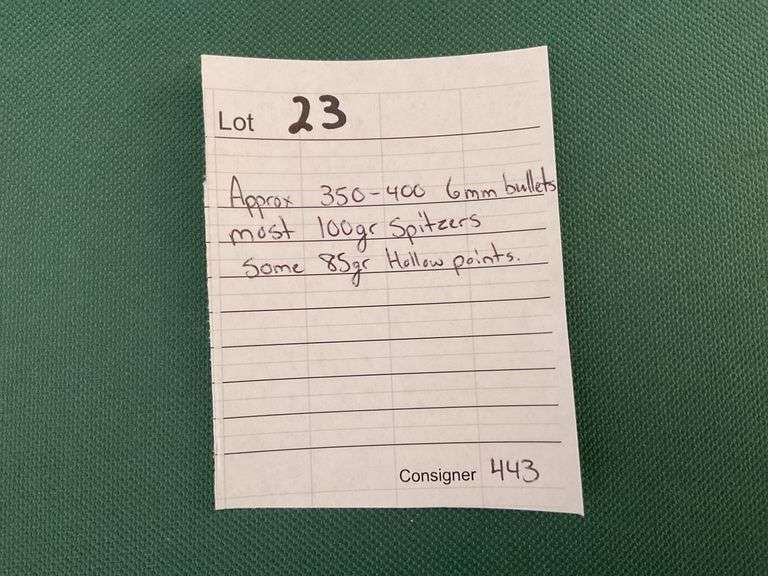 Lot 23
Approx 350-400 6mm bullets
most 100gr Spitzers
Some 85gr Hollow points.
Consigner 443